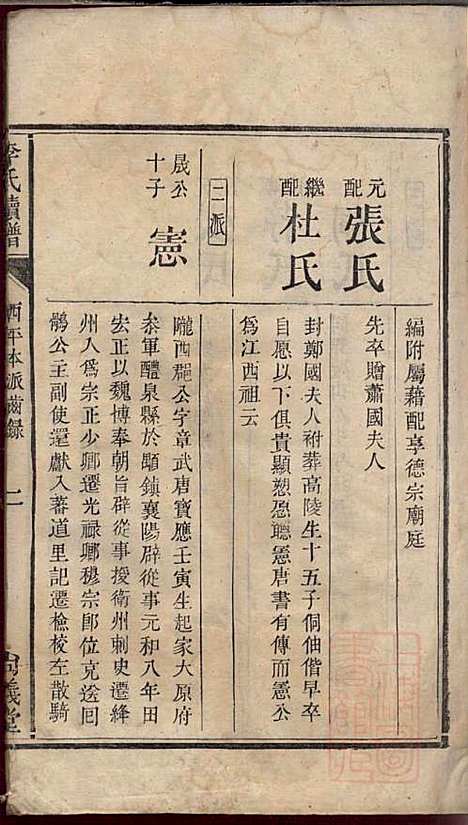 編附屬藉配享德宗廟庭
元配 張氏
先卒贈蕭國夫人
繼配 杜氏
封鄭國夫人祔葬高陵生十五子侗伷偕早卒
自愿以下俱貴顯愬聽憲唐書有傳而憲公
為江西祖云
二派
晟公十子 憲
隴西郡公字章武唐寶應壬寅生起家大原府
叅軍醴泉縣於頔鎮襄陽辟從事元和八年田
宏正以魏博奉朝旨辟從事授衛州刺史遷絳
州人為宗正少卿遷光禄卿穆宗卽位克送囘
鶻公主副使還獻入蕃道里記遷檢校左散騎
李氏續譜
西平本派齒錄
二
義堂